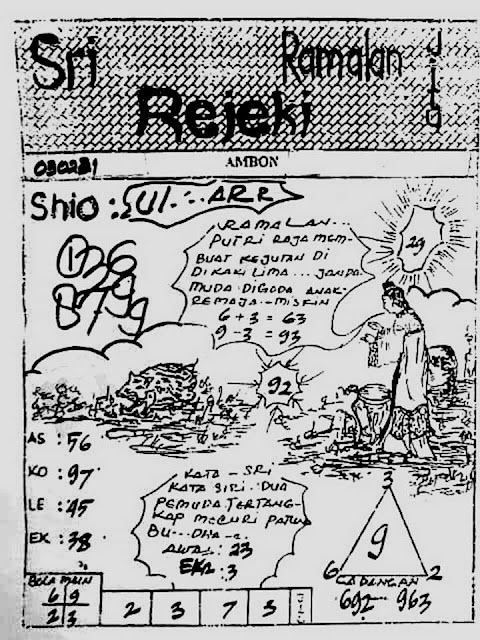 Sri
Ramalan
Jitu
Rejeki
030221
AMBON
Shio :
RAMALAN...
PUTRI RAJA MEM-
BUAT KEJUTAN DI
DI KAKI LIMA... JANDA
MUDA DIGODA ANAK
REMAJA.. MISKIN
6 + 3 = 63
9 - 3 = 93
29
92
AS : 56
KO : 97
LE : 45
EK : 38
KATA - SRI
KATA SIRI.. DUA
PEMUDA TERTANG-
KAP MECURI PATUNG
BU... DHA
AWAL : 23
EKR : 3
3
9
6 2
CADANGAN
692 963
BOLA MAIN
6 9
2 3
2 3 7 3